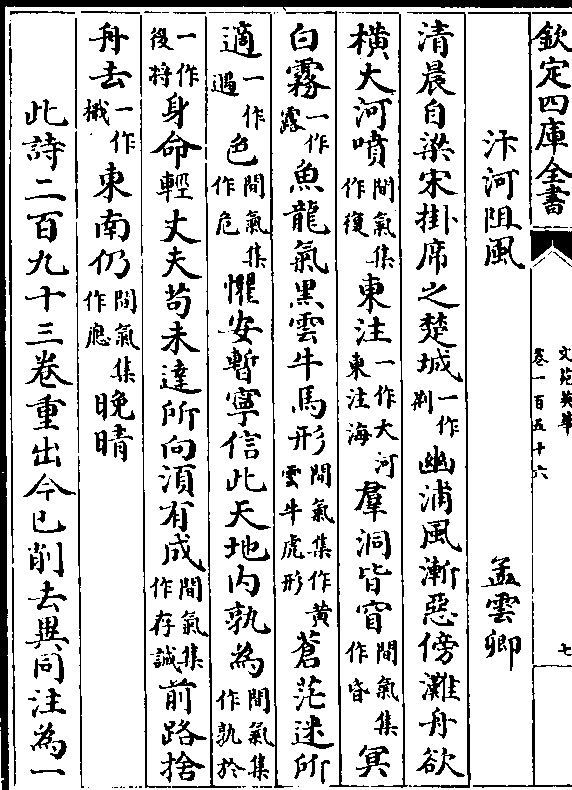 欽定四庫全書
文苑英華
卷一百五十六
七
汴河阻風
孟雲卿
清晨自梁宋掛席之楚城一作荆幽浦風漸惡傍灘舟欲
橫大河噴間氣集作復東注一作大河東注海羣洞皆窅間氣集作昏冥
白霧一作露魚龍氣黑雲牛馬形間氣集作黄雲牛虎形蒼茫迷所
適一作過色間氣集作危懼安暫寧信此天地内孰為間氣集作孰於
一作後將身命輕丈夫苟未達所向湏有成間氣集作存誠前路捨
舟去一作檝東南仍間氣集作應晚晴
此詩二百九十三卷重出今已削去異同注為一